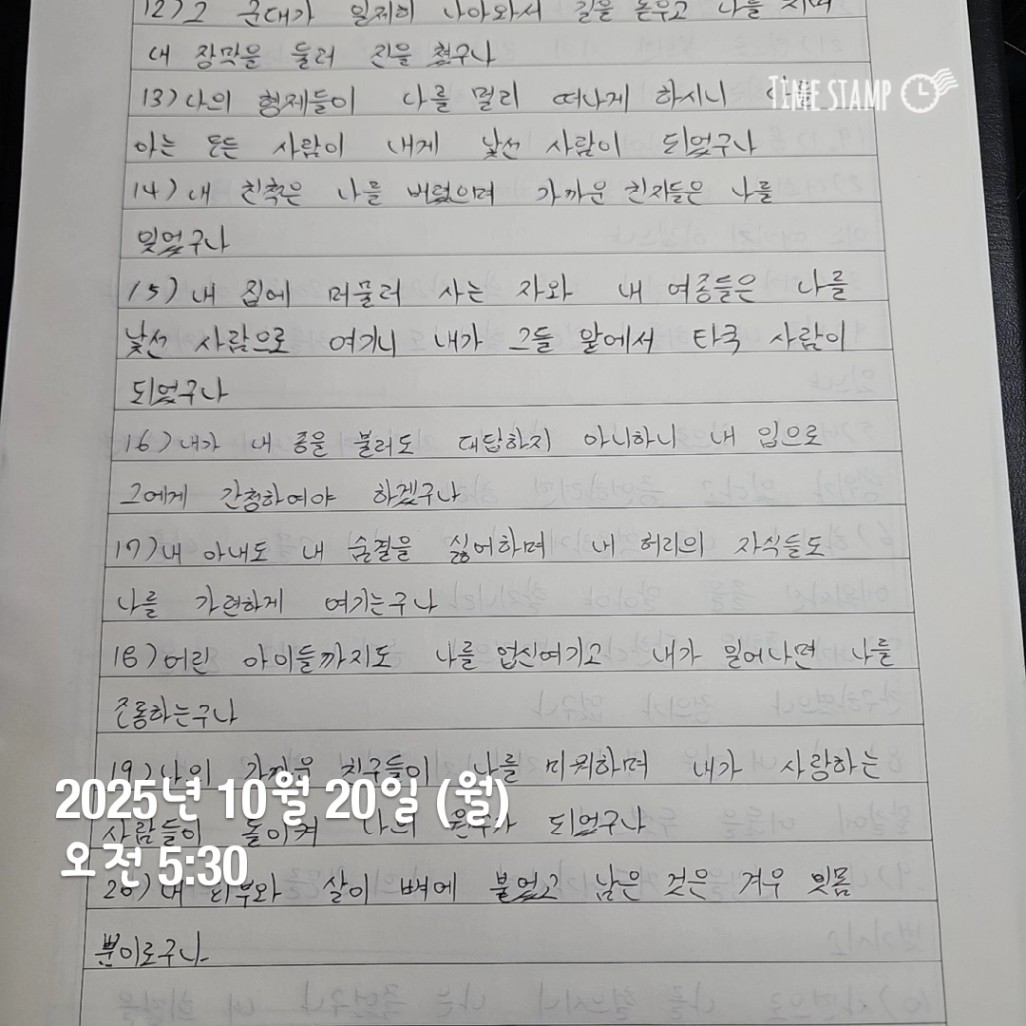 12) 그 군대가 일제히 나아와서 길을 돋우고 나를 치며
내 장막을 둘러 진을 쳤구나
13) 나의 형제들이 나를 멀리 떠나게 하시니 나를
TIME STAMP
아는 모든 사람이 내게 낯선 사람이 되었구나
14) 내 친척은 나를 버렸으며 가까운 친지들은 나를
잊었구나
15) 내 집에 머물러 사는 자와 내 여종들은 나를
낯선 사람으로 여기니 내가 그들 앞에서 타국 사람이
되었구나
16) 내가 내 종을 불러도 대답하지 아니하니 내 입으로
그에게 간청하여야 하겠구나
17) 내 아내도 내 숨결을 싫어하며 내 허리의 자식들도
나를 가련하게 여기는구나
18) 어린 아이들까지도 나를 업신여기고 내가 일어나면 나를
조롱하는구나
19) 나의 가까운 친구들이 나를 미워하며 내가 사랑하는
2025년 10월 20일 (월)
사람들이 돌이켜 나의 원수가 되었구나
오전 5:30
20) 내 피부와 살이 뼈에 붙었고 남은 것은 겨우 잇몸
뿐이로구나